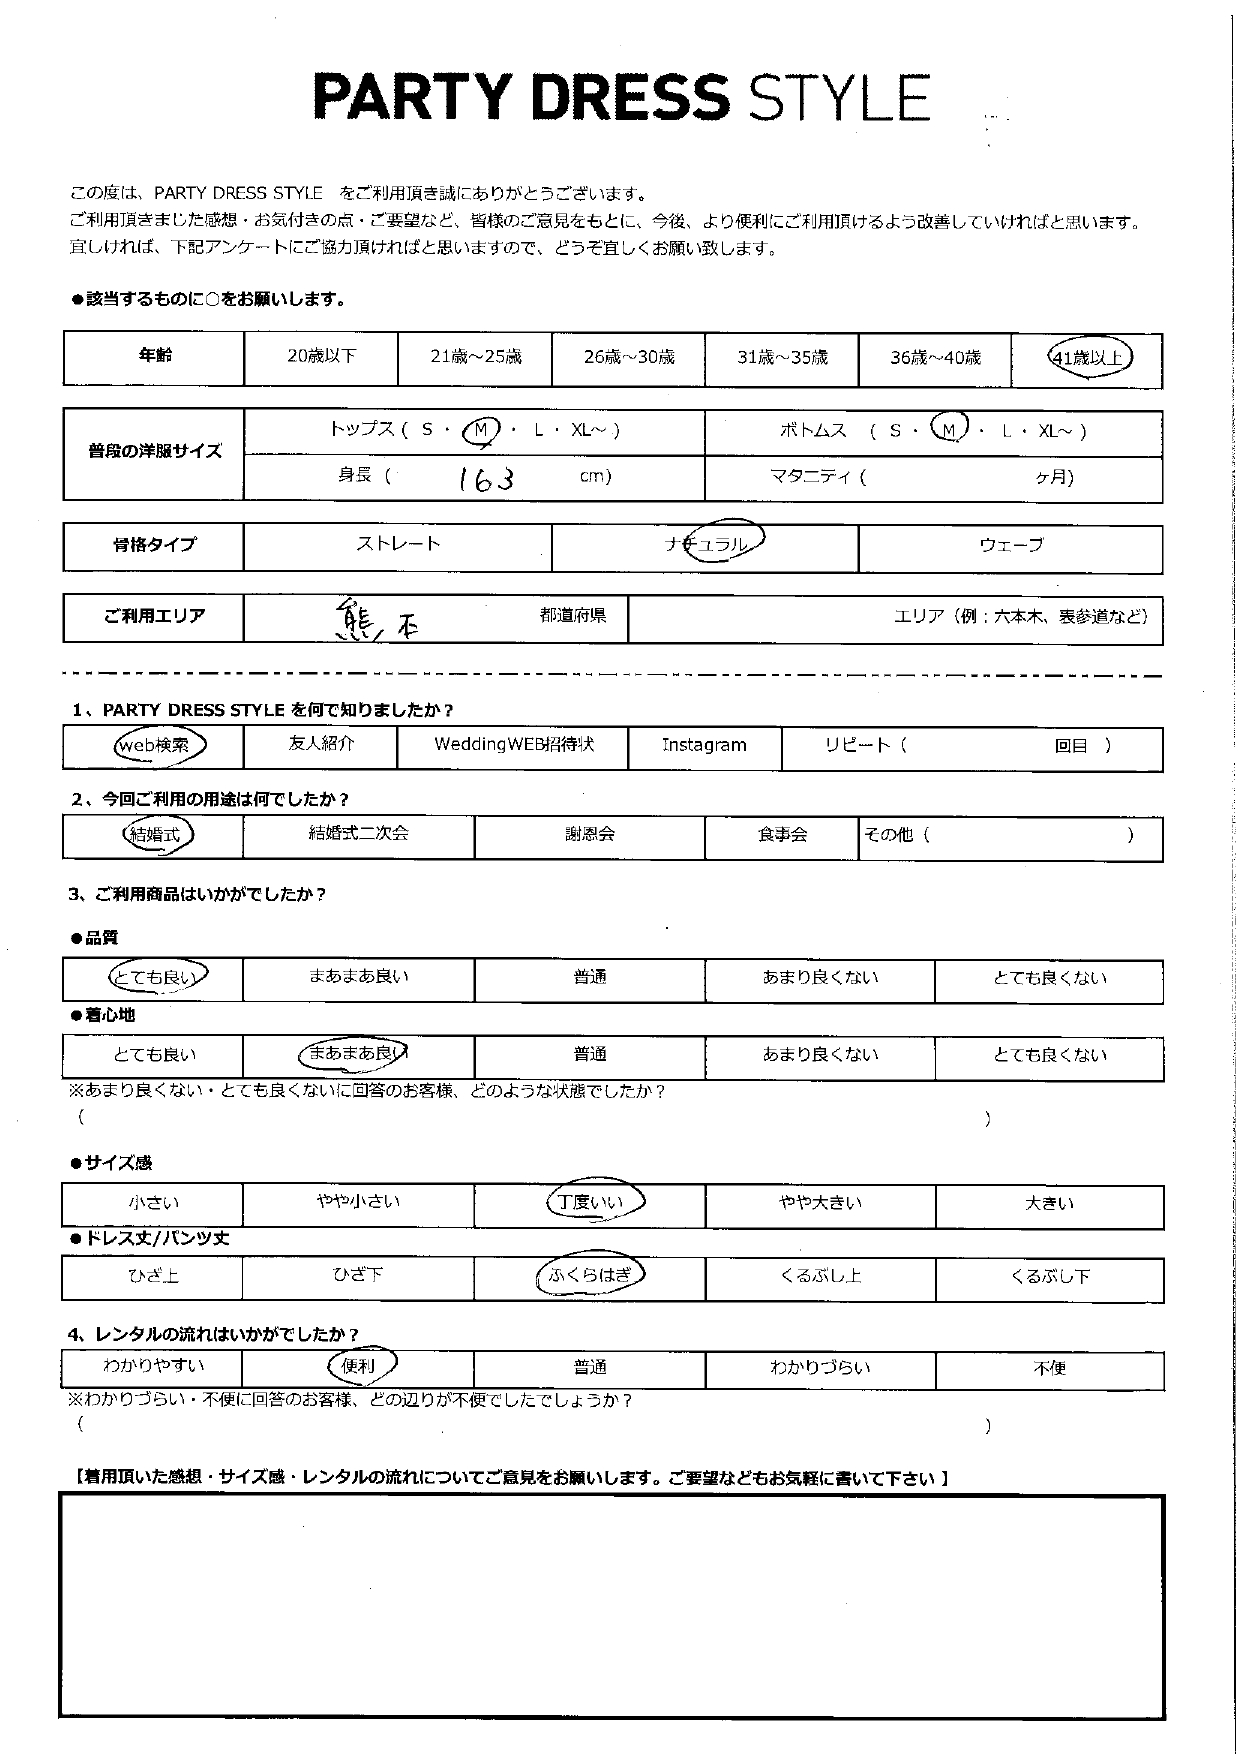 PARTY DRESS STYLE
この度は、PARTY DRESS STYLE　をご利用頂き誠にありがとうございます。
ご利用頂きました感想・お気付きの点・ご要望など、皆様のご意見をもとに、今後、より便利にご利用頂けるよう改善していければと思います。
宜しければ、下記アンケートにご協力頂ければと思いますので、どうぞ宜しくお願い致します。
●該当するものに○をお願いします。
年齢 20歳以下 21歳～25歳 26歳～30歳 31歳～35歳 36歳～40歳 41歳以上
普段の洋服サイズ トップス ( S ・ M ・ L ・ XL～ ) ボトムス ( S ・ M ・ L ・ XL～ )
身長 ( 163 cm) マタニティ ( ヶ月)
骨格タイプ ストレート ナチュラル ウェーブ
ご利用エリア 熊本 都道府県 エリア（例：六本木、表参道など）
1、PARTY DRESS STYLE を何で知りましたか？
web検索 友人紹介 WeddingWEB招待状 Instagram リピート ( 回目 )
2、今回ご利用の用途は何でしたか？
結婚式 結婚式二次会 謝恩会 食事会 その他 ( )
3、ご利用商品はいかがでしたか？
●品質
とても良い まあまあ良い 普通 あまり良くない とても良くない
●着心地
とても良い まあまあ良い 普通 あまり良くない とても良くない
※あまり良くない・とても良くないに回答のお客様、どのような状態でしたか？
( )
●サイズ感
小さい やや小さい 丁度いい やや大きい 大きい
●ドレス丈/パンツ丈
ひざ上 ひざ下 ふくらはぎ くるぶし上 くるぶし下
4、レンタルの流れはいかがでしたか？
わかりやすい 便利 普通 わかりづらい 不便
※わかりづらい・不便に回答のお客様、どの辺りが不便でしたでしょうか？
( )
【着用頂いた感想・サイズ感・レンタルの流れについてご意見をお願いします。ご要望などもお気軽に書いて下さい 】